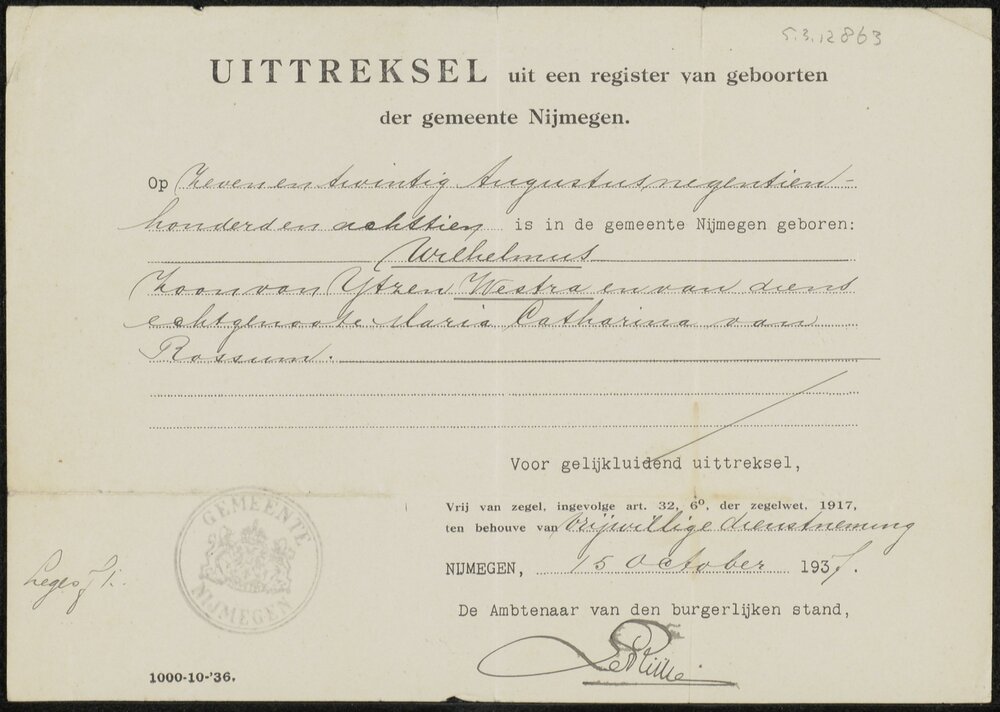 5.3.12863
UITTREKSEL uit een register van geboorten
der gemeente Nijmegen.
Op Zeven en twintig Augustus negentien-
honderd en achttien is in de gemeente Nijmegen geboren:
Wilhelmus
Zoon van Ytzen Westra en van diens
echtgenoote Maria Catharina van
Rossum.
Voor gelijkluidend uittreksel,
Vrij van zegel, ingevolge art. 32, 6º, der zegelwet, 1917,
ten behoeve van vrijwillige dienstneming
NIJMEGEN, 15 October 1937.
De Ambtenaar van den burgerlijken stand,
GEMEENTE
NIJMEGEN
Leges
1000-10-'36.